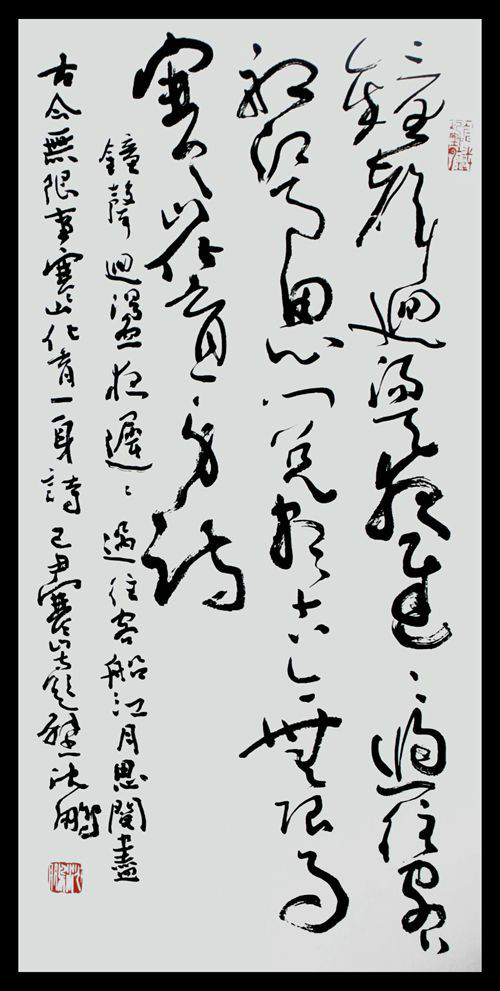 鐘聲迴盪夜遲〻過往客
船江月思閱盡古今無限事
寒山化育一身詩
鐘聲迴盪夜遲〻過往客船江月思閱盡
古今無限事寒山化育一身詩 己丑寒山寺題壁沈鵬